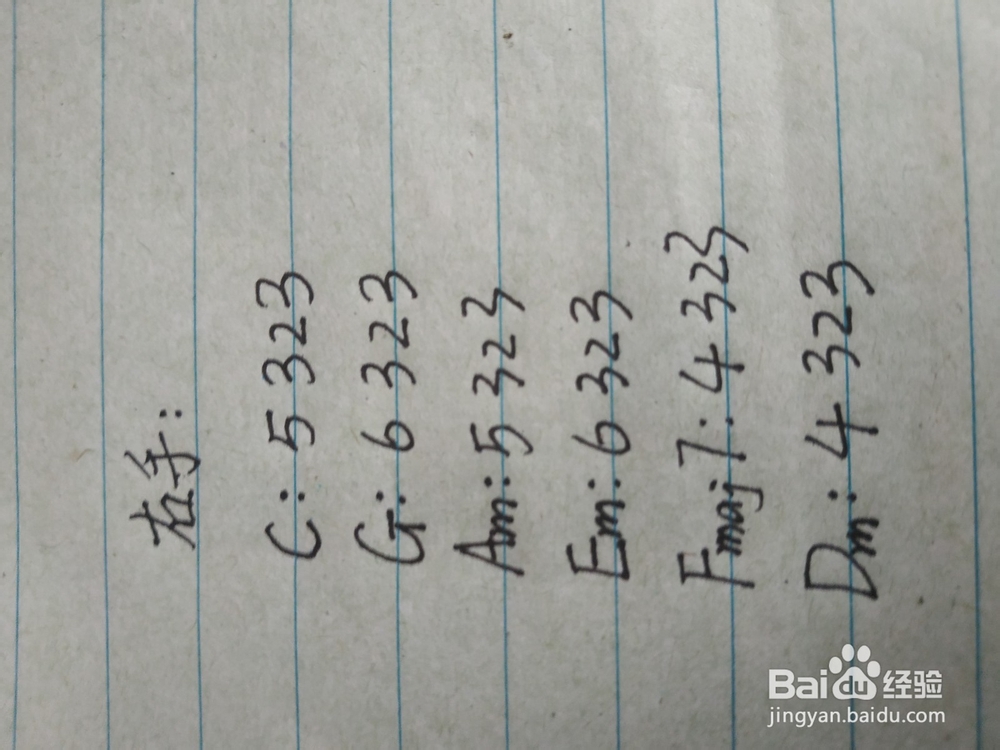 右手:
C: 5 3 2 3
G: 6 3 2 3
Am: 5 3 2 3
Em: 6 3 2 3
Fmaj7: 4 3 2 3
Dm: 4 3 2 3
Baidu 经验
jingyan.baidu.com